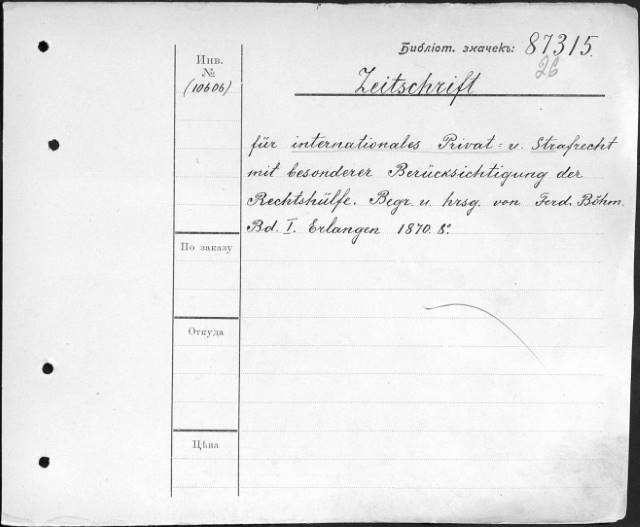 Библіот. значекъ: 87315.
26
Инв.
№
(10606)
Zeitschrift
für internationales Privat= u. Strafrecht
mit besonderer Berücksichtigung der
Rechtshülfe. Begr. u. hrsg. von Ferd. Böhm.
Bd. I. Erlangen 1870. 8º.
По заказу
Откуда
Цѣна